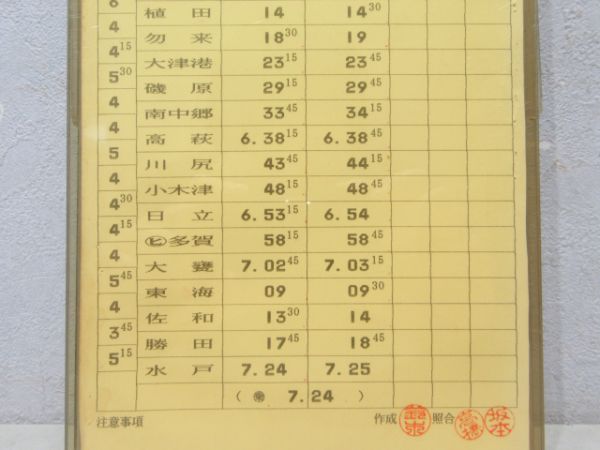 6
植田 14 14³⁰
4
勿来 18³⁰ 19
4¹⁵
大津港 23¹⁵ 23⁴⁵
5³⁰
磯原 29¹⁵ 29⁴⁵
4
南中郷 33⁴⁵ 34¹⁵
4
高萩 6.38¹⁵ 6.38⁴⁵
5
川尻 43⁴⁵ 44¹⁵
4
小木津 48¹⁵ 48⁴⁵
4³⁰
日立 6.53¹⁵ 6.54
4¹⁵
㋪多賀 58¹⁵ 58⁴⁵
4
大甕 7.02⁴⁵ 7.03¹⁵
5⁴⁵
東海 09 09³⁰
4
佐和 13³⁰ 14
3⁴⁵
勝田 17⁴⁵ 18⁴⁵
5¹⁵
水戸 7.24 7.25
( 7.24 )
注意事項 作成 照合 坂本